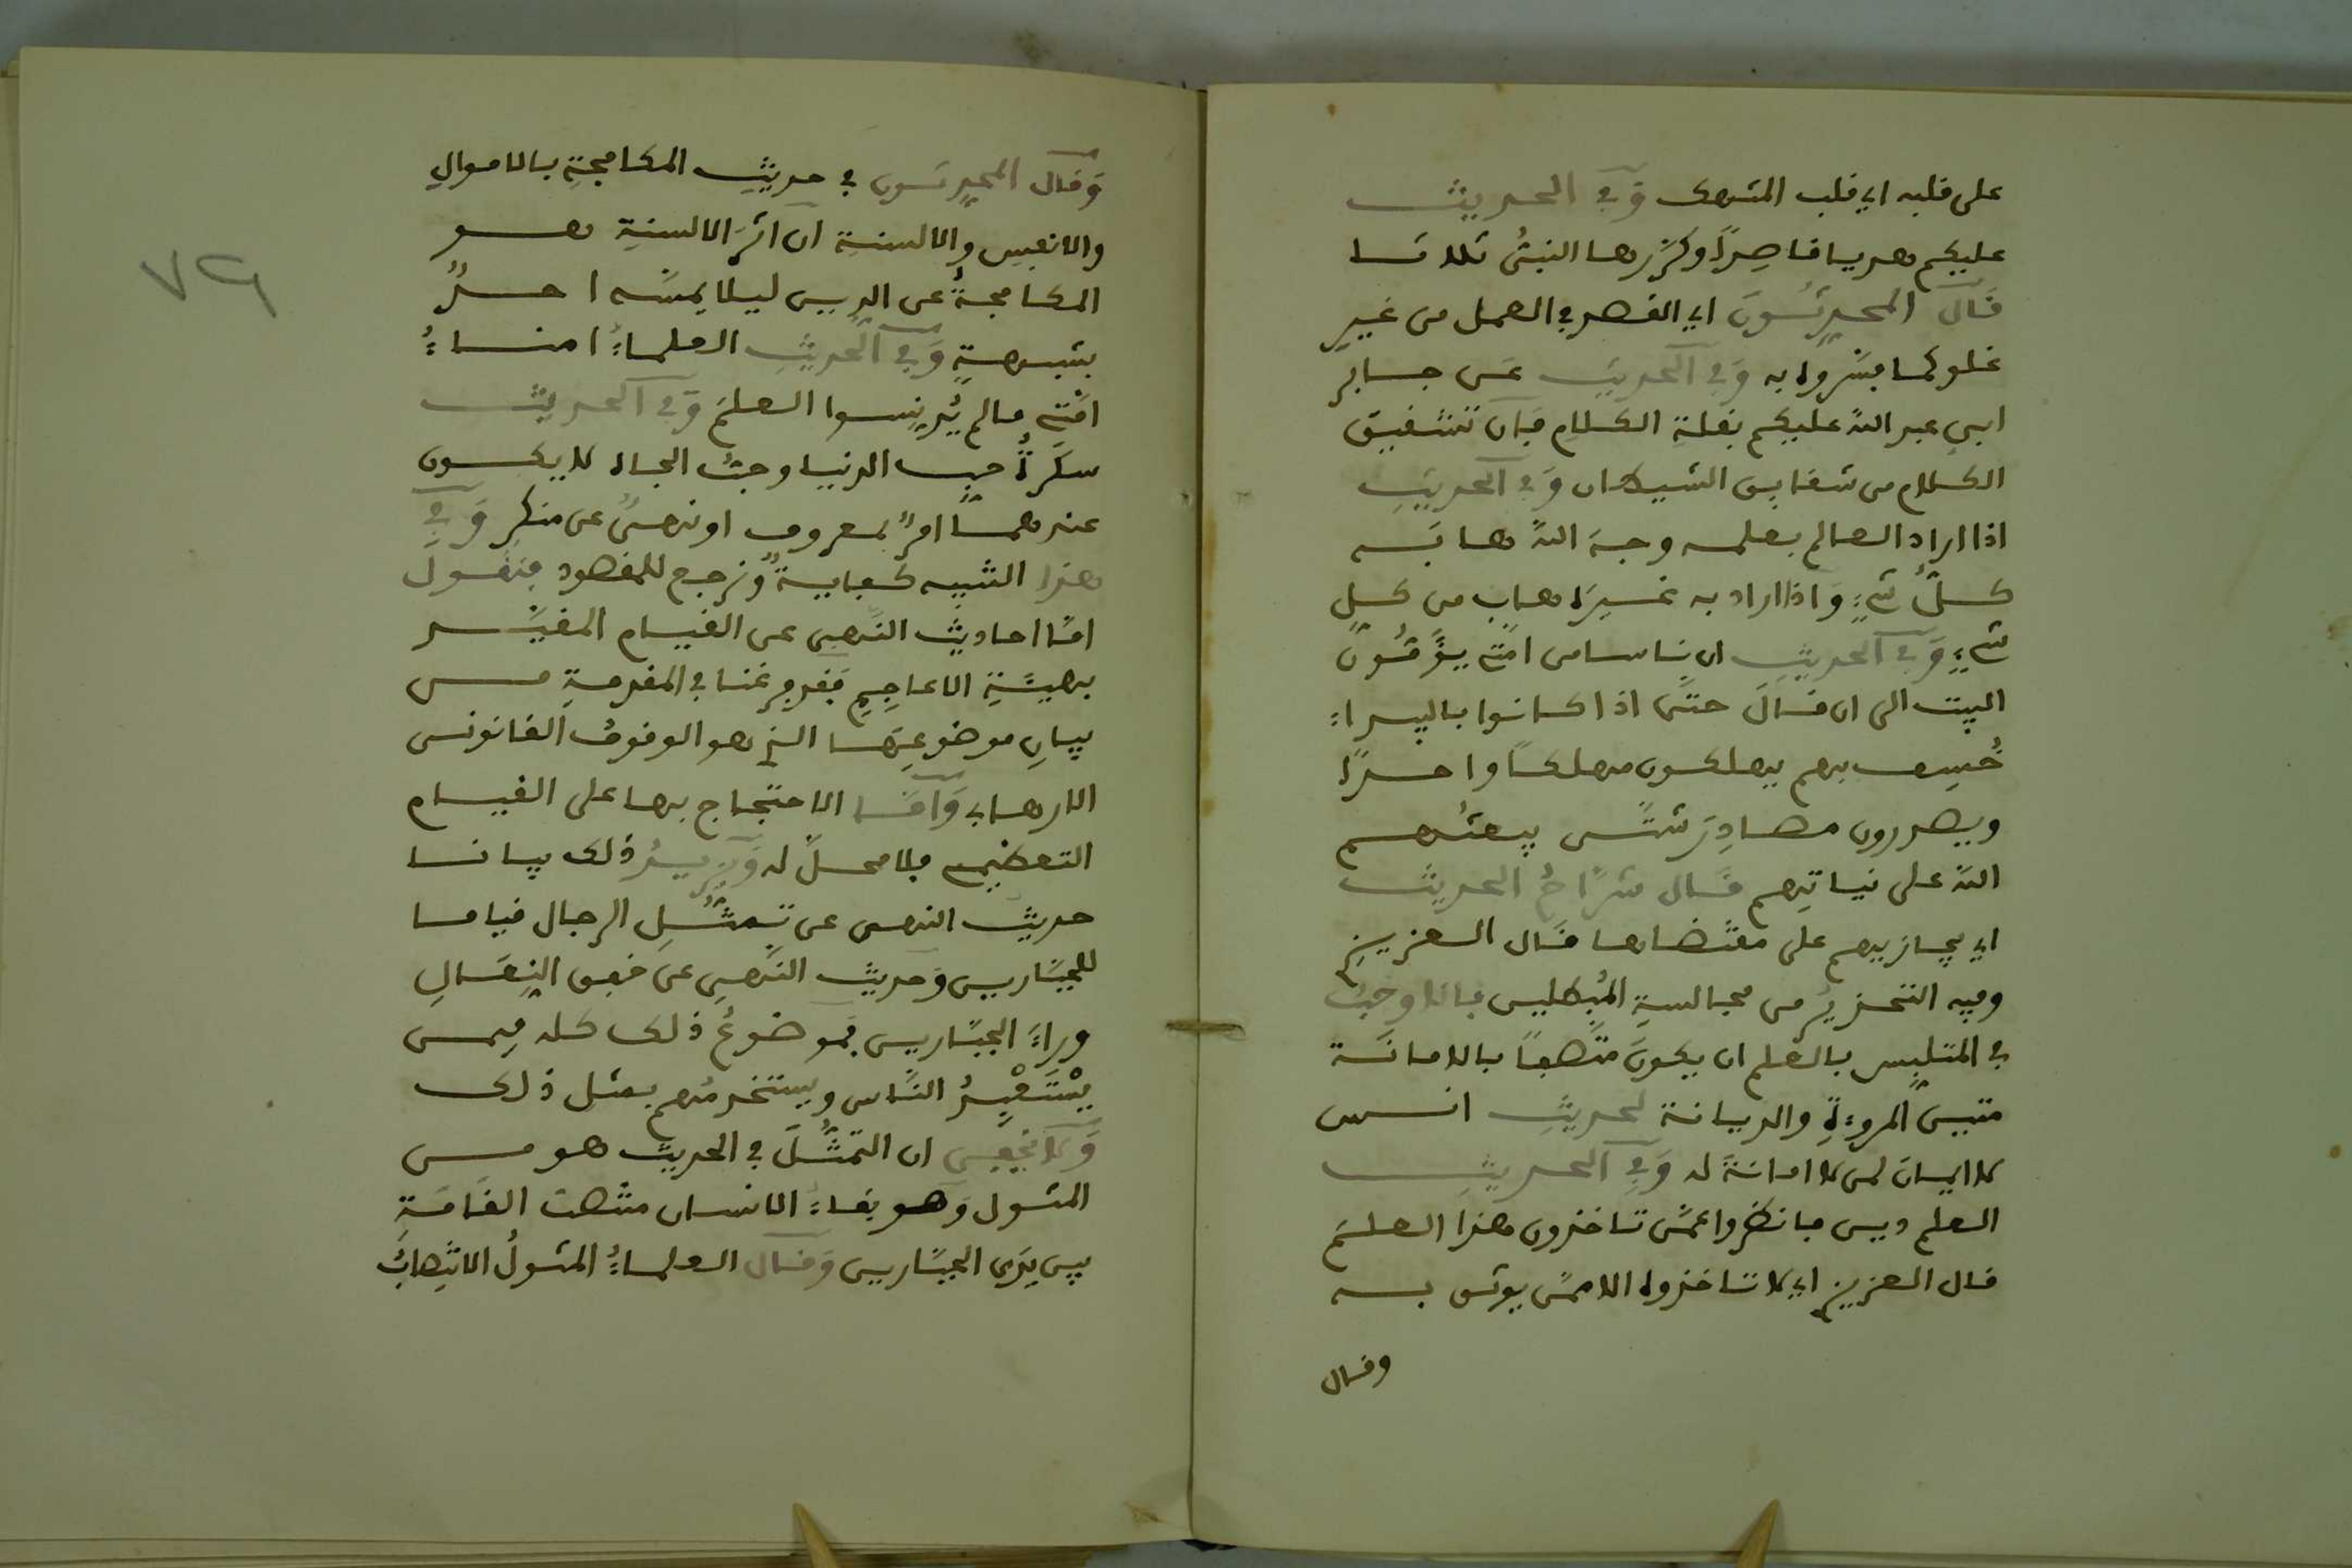 على قلبه اي قلب المتهمك وفي الحديث
عليكم هديا قاصدًا وكررها النبيُّ ثلاثا
قال المحدثون اي القصد في العمل من غير
غلو كما فسروه به وفي الحديث عن جابر
ابن عبد الله عليكم بقلة الكلام فإن تشقيق
الكلام من شقايق الشيطان وفي الحديث
اذا اراد العالم بعلمه وجهَ اللهِ هابَه
كلُّ شيءٍ وَاذا اراد به غيرَه هاب من كل
شيءٍ وفي الحديث ان ناسا من امتي يؤمون
البيت الى ان قال حتى اذا كانوا بالبيداء
خُسِف بهم يهلكون مهلكًا واحدًا
ويصدرون مصادرَ شتَّى يبعثُهم
الله على نياتِهم قال شرَّاحُ الحديث
اي يجازيهم على مقتضاها قال العزيزي
وفيه التحذيرُ من مجالسةِ المُبطلين فالواجبُ
في المتلبِّس بالعلم ان يكونَ متَّصفًا بالامانة
متين المروءةِ والديانة لحديثِ انس
لا ايمانَ لمن لا امانةَ له وفي الحديث
العلم دين فانظروا عمَّن تاخذون هذا العلمَ
قال العزيزي اي لا تاخذوه الا ممَّن يوثق به
وقال
وَقال المحدثون في حديثِ المكافحةِ بالاموالِ
والانفسِ والالسنةِ ان اثرَ الالسنةِ هو
المكافحةُ عن الدين ليلا يمسَّه احدٌ
بشبهةٍ وَفي الحديثِ العلماءُ امناءُ
امَّتي مالم يُدنِّسوا العلمَ وَفي الحديث
سكرةُ حبِّ الدنيا وحبُّ الجاه لا يكون
عندهما امرٌ بمعروف او نهيٌ عن منكرٍ وَفي
هذا التنبيه كفايةٌ ونرجع للمقصود فنقول
امَّا احاديث النَّهي عن القيام المقيَّد
بهيئةِ الاعاجِمِ فقد فرغنا في المقدمةِ من
بيانِ موضوعِها الذي هو الوقوفُ القانوني
الارهابي وَامَّا الاحتجاج بها على القيام
التعظيمي فلا محلَّ له وَيزيدُ ذلك بيانا
حديث النهي عن تمثُّلِ الرجال قياما
للجبَّارين وَحديث النَّهيِ عن خفق النِعالِ
وراءَ الجبَّارين فموضوعُ ذلك كله فِيمن
يسْتَعْبِدُ النَّاس ويستخدمُهم بمثل ذلك
وَلا يخفى ان التمثُّلَ في الحديث هو من
المثول وَهو بقاءُ الانسان منتصبَ القامَةِ
بين يَدي الجبَّارين وَقال العلماءُ المثولُ الانتِصابُ
٧٩